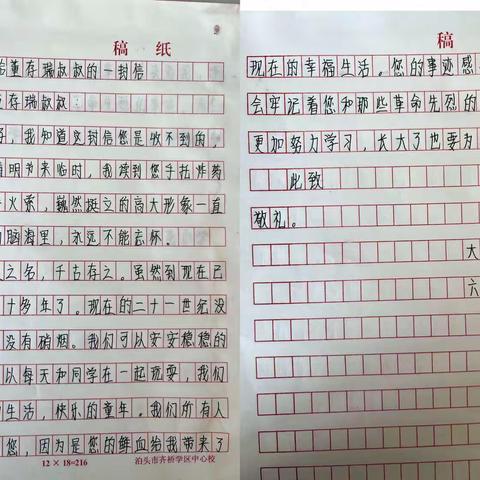 稿 纸
董存瑞叔叔的一封信
存瑞叔叔:
我知道这封信您是收不到的,
明节来临时,我读到您手托炸药
火索,巍然挺立的高大形象一直
脑海里,永远不能忘怀。
之名,千古存之。虽然到现在已
十多年了。现在的二十一世纪没
没有硝烟。我们可以安安稳稳的
以每天和同学在一起玩耍,我们
生活,快乐的童年。我们所有人
您,因为是您的鲜血给我带来了
12×18=216 泊头市齐桥学区中心校
稿
现在的幸福生活。您的事迹感
会牢记着您和那些革命先烈的
更加努力学习,长大了也要为
此致
敬礼。
大
六